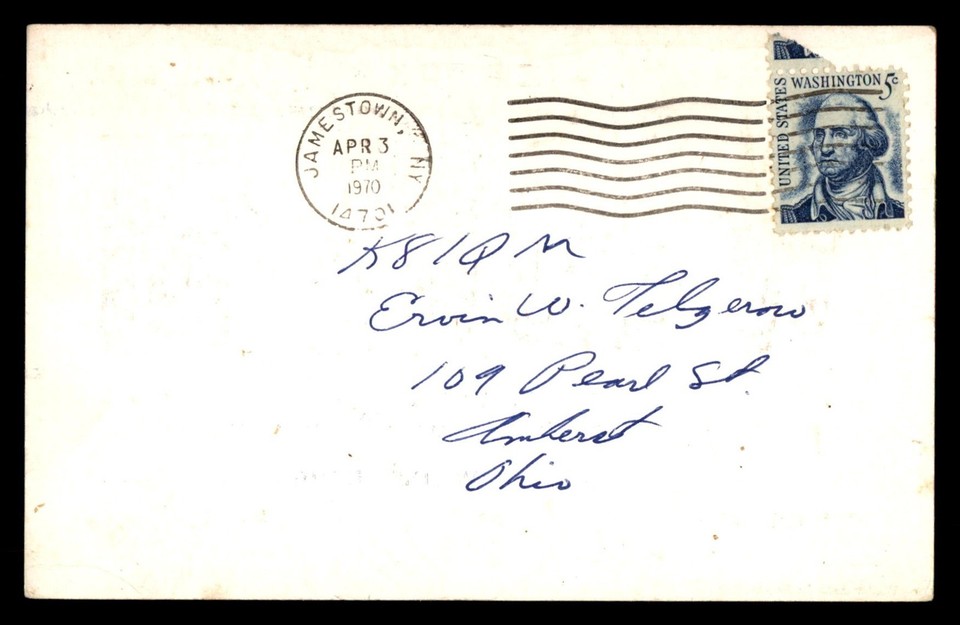 JAMESTOWN, NY
APR 3
PM
1970
14701
UNITED STATES
WASHINGTON 5c
K8IQM
Ervin W. Telgerow
109 Pearl St.
Amherst
Ohio